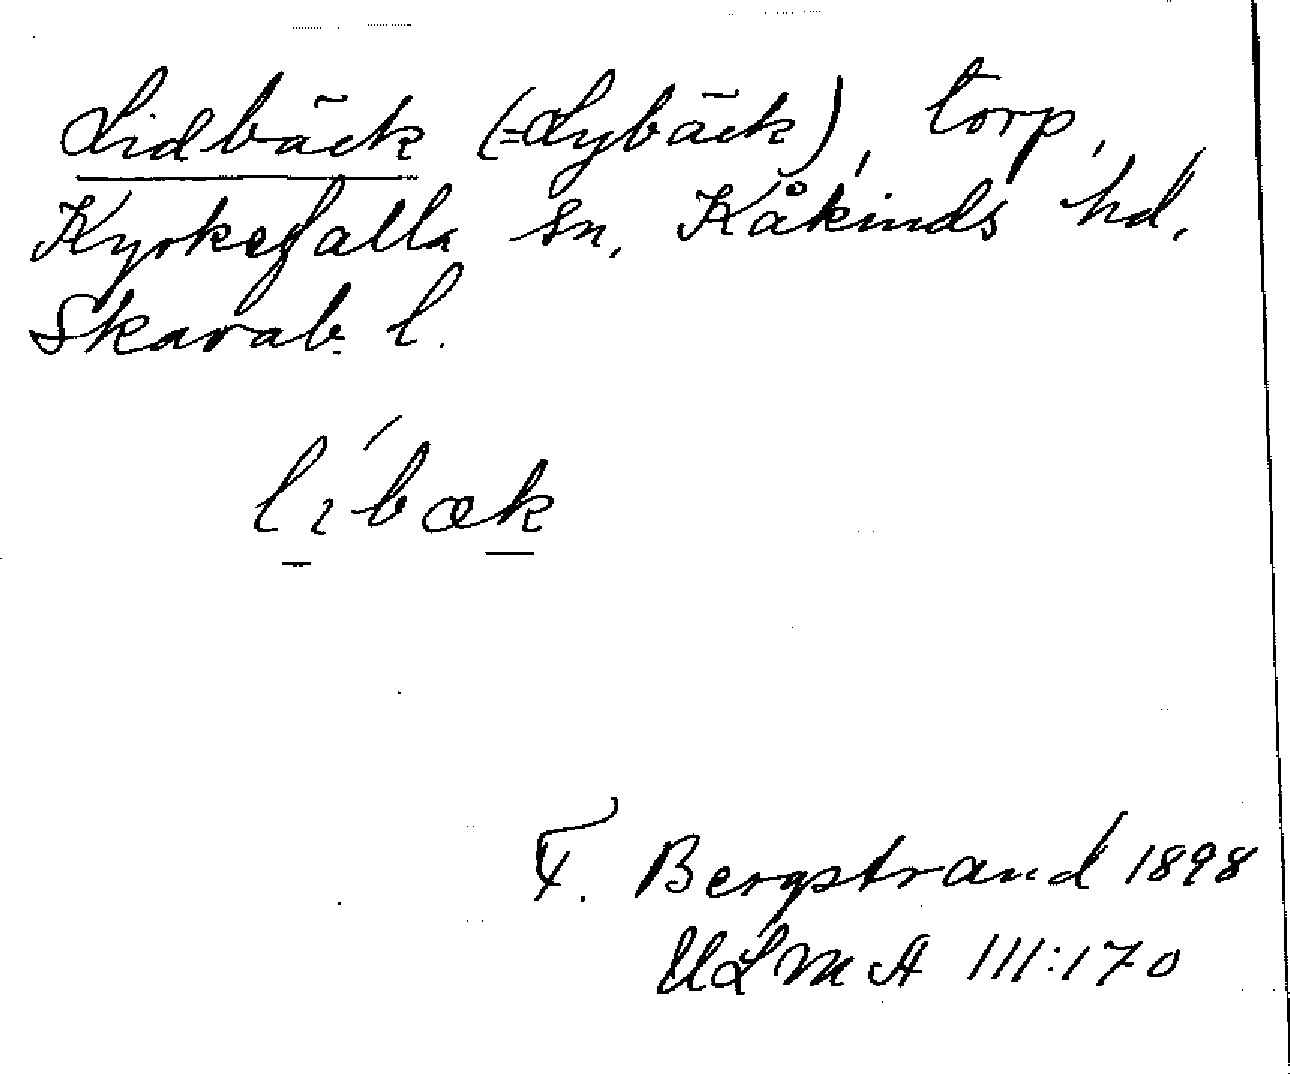 Lidbäck (=Lybäck), torp,
Kyrkefalla sn, Kåkinds hd,
Skarab. l.
lı́bæk
F. Bergstrand 1898
ULMA 111:170